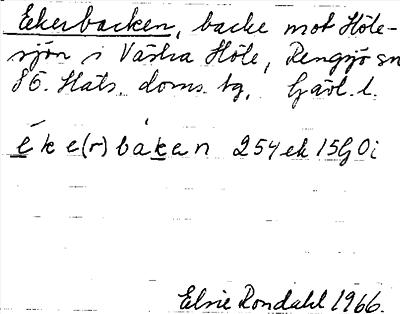 Ekerbacken, backe mot Höle-
sjön i Västra Höle, Rengsjö sn
S6. Häls. doms. tg. Gävl. l.
éke(r)bàkan 254ek 15G0i
Elsie Rondahl 1966.